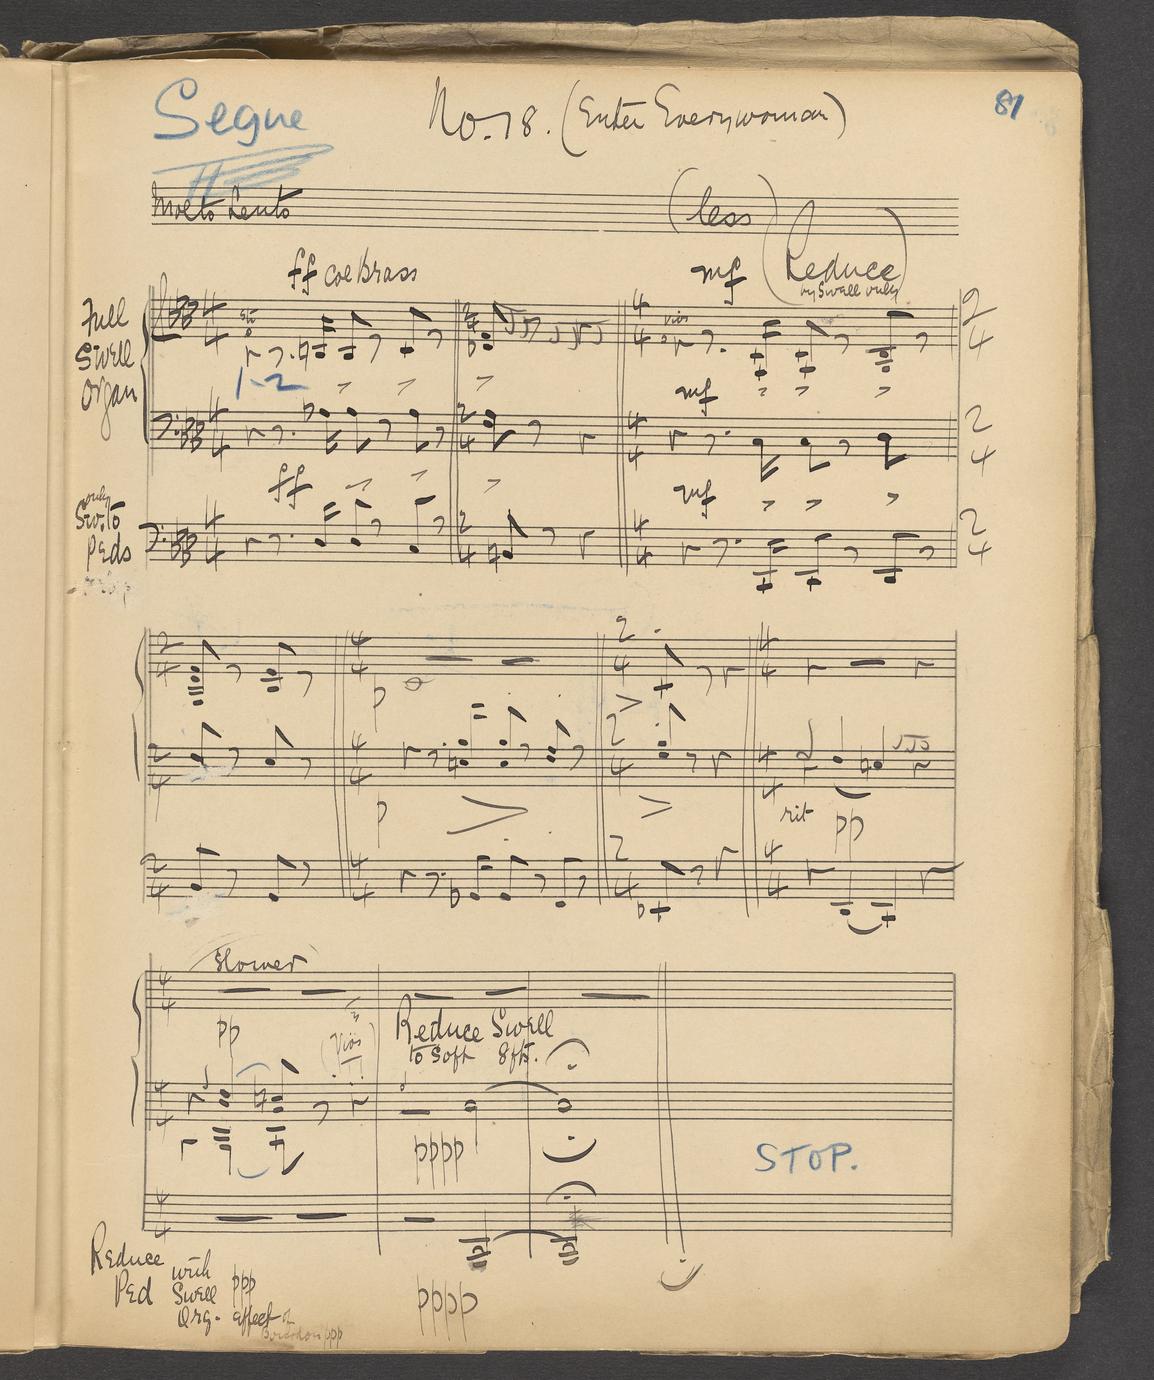 Segue
No. 18. (Enter Everywoman)
81
Molto Lento
(less)
ff col Brass
mf
(Reduce
by Swell only)
Full
Swell
Organ
1-2
mf
ff
mf
only
Sw. to
Peds
p
p
rit
pp
Slower
pp
(Vlns)
Reduce Swell
to soft 8ft.
pppp
STOP.
Reduce
Ped
with
Swell
Org.
ppp
effect of
Bourdon ppp
pppp